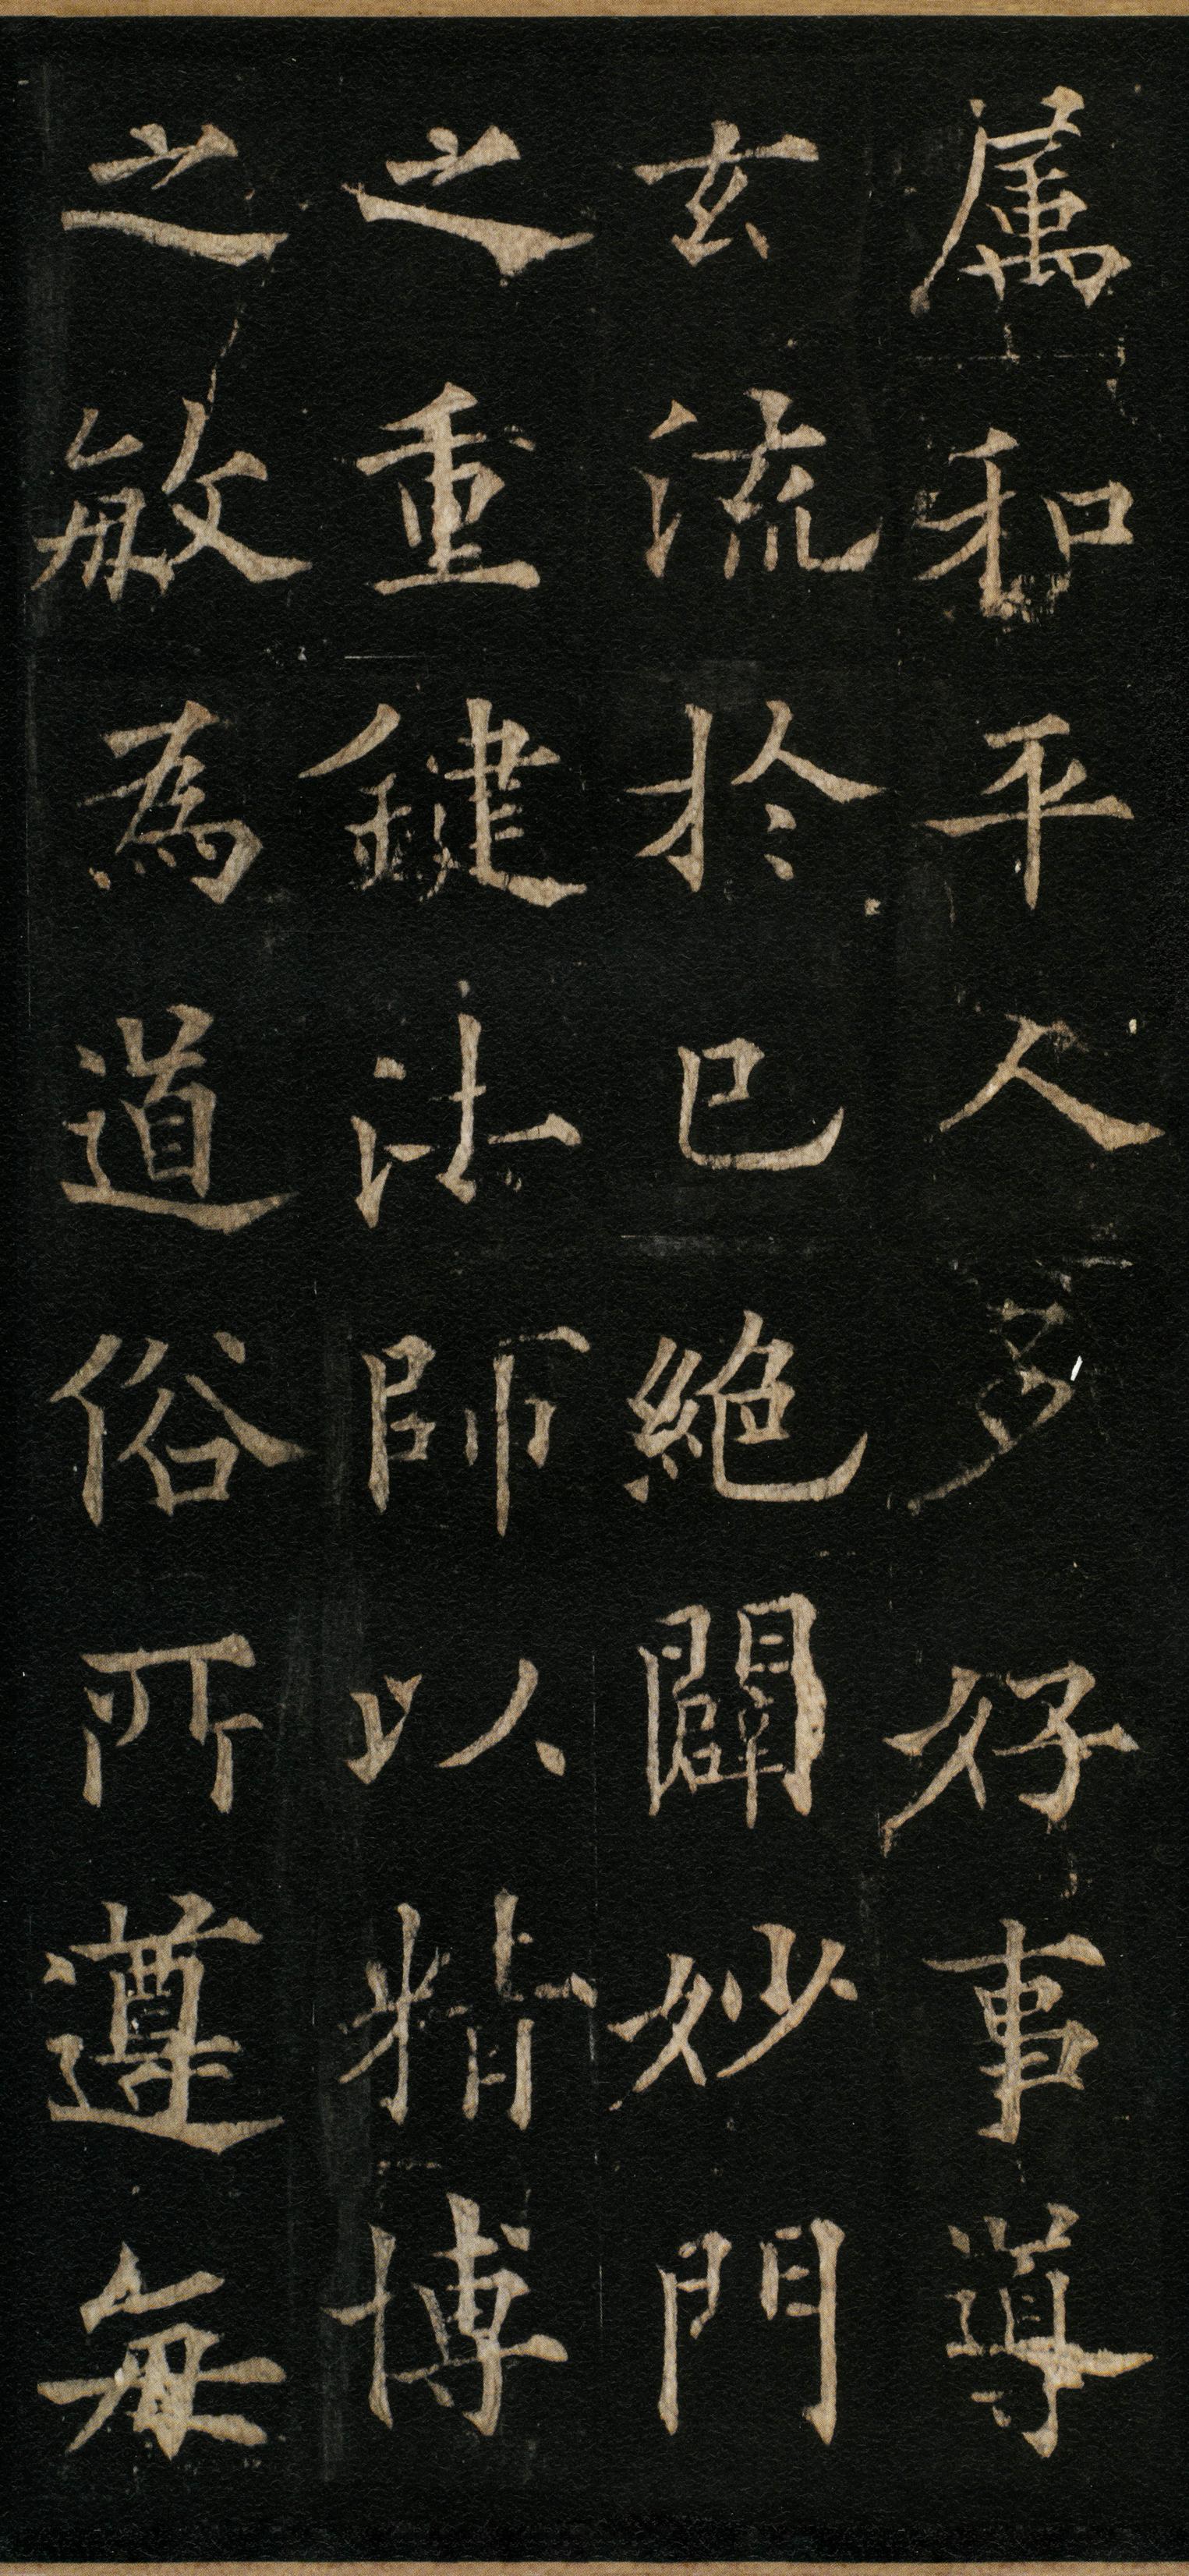 属和平人多好事導
玄流於已絕闢妙門
之重鍵法師以精博
之敏為道俗所遵每